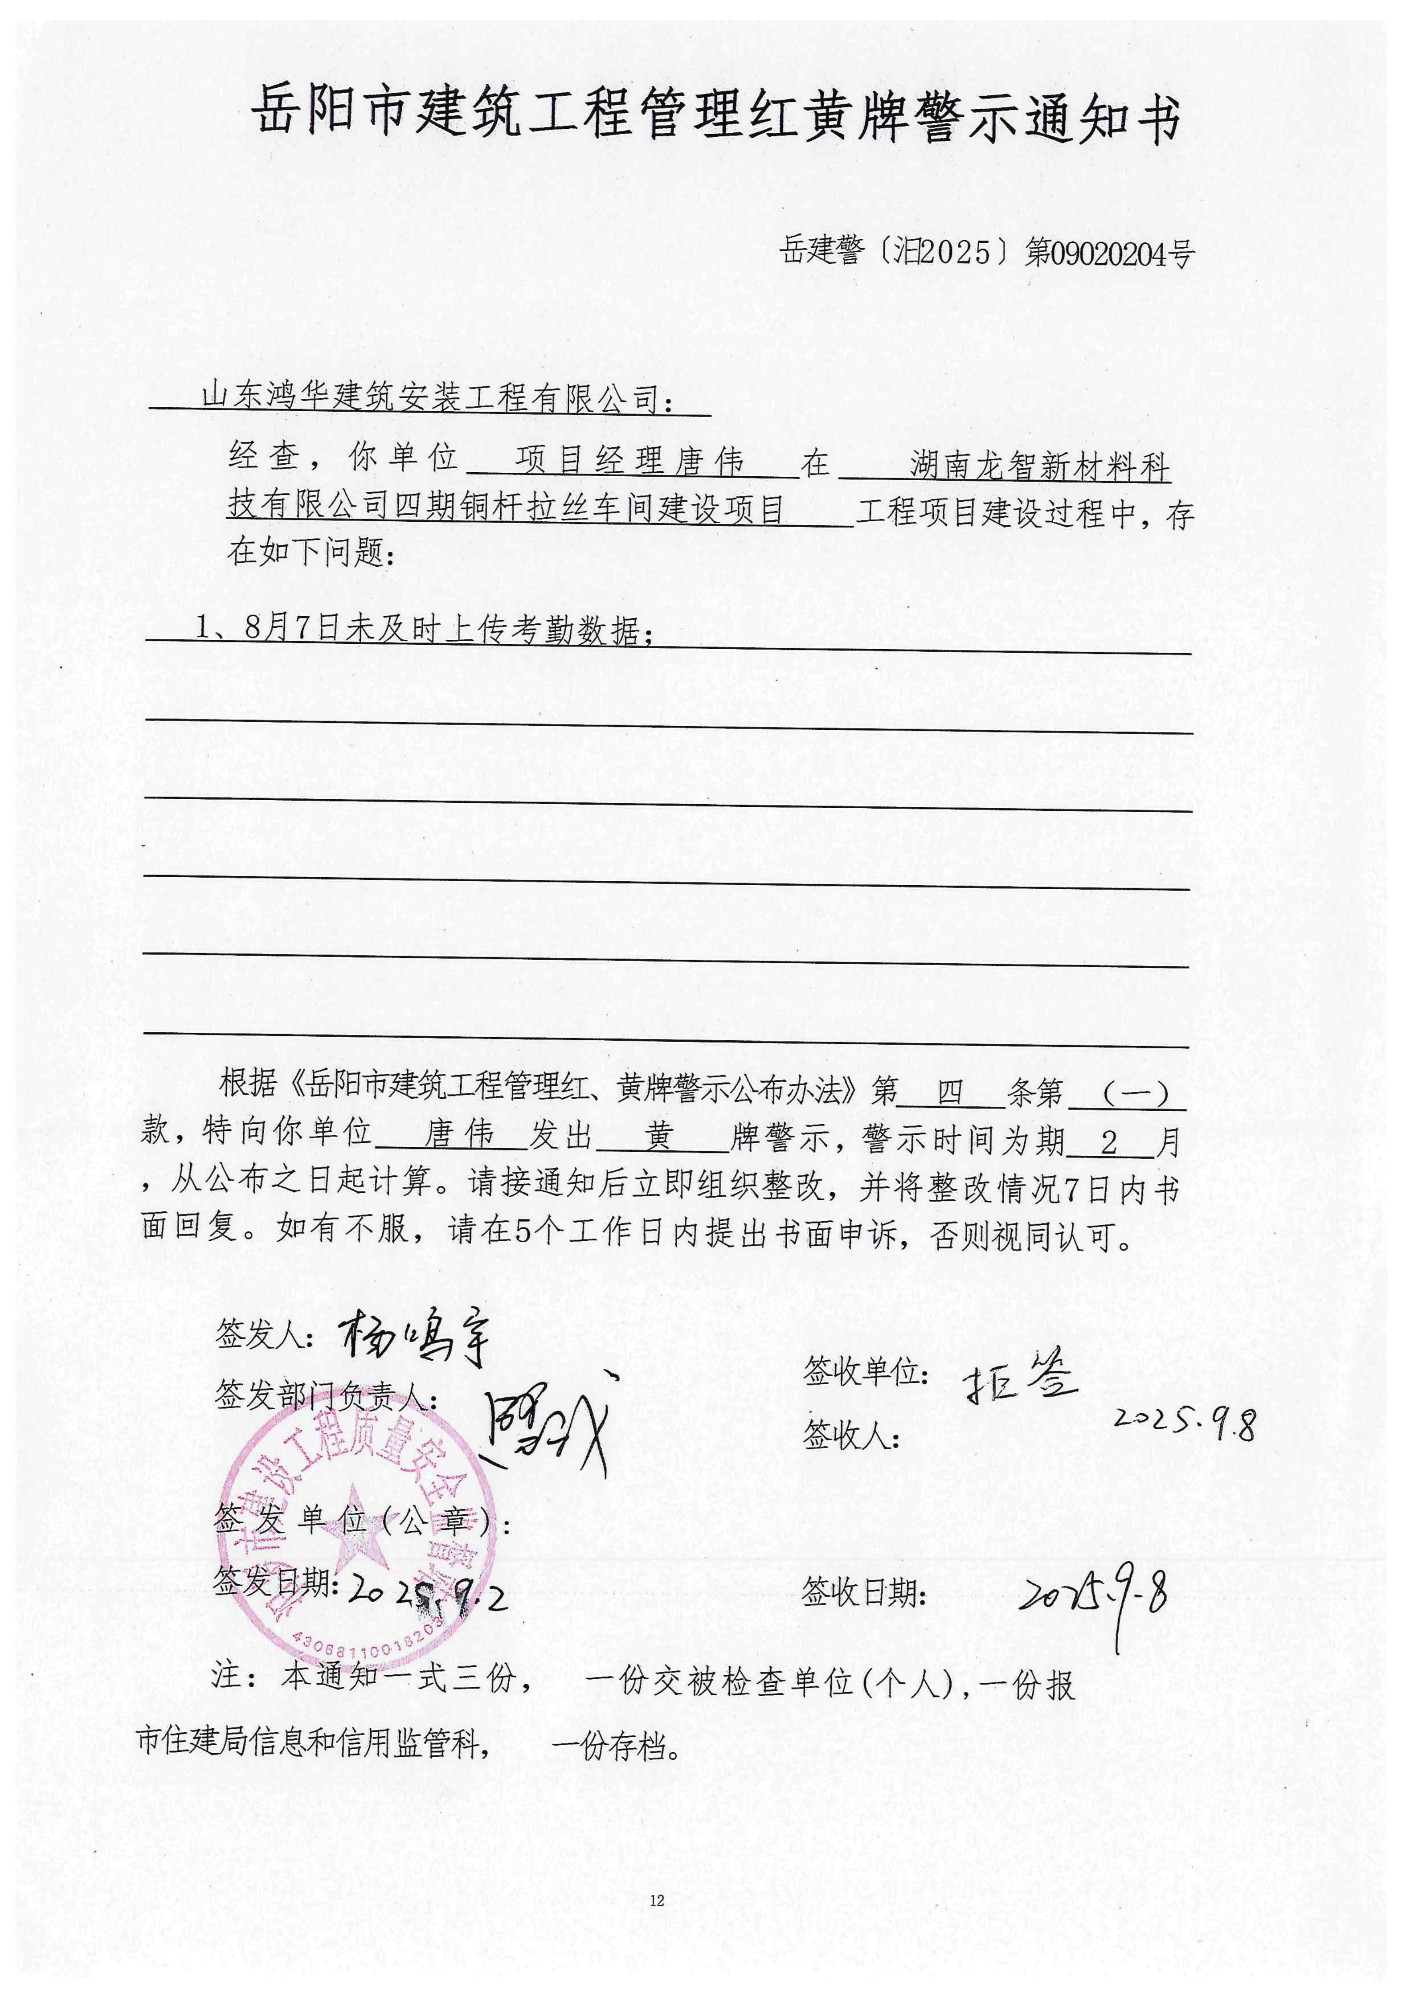 岳阳市建筑工程管理红黄牌警示通知书
岳建警〔汨2025〕第09020204号
山东鸿华建筑安装工程有限公司：
经查，你单位 项目经理唐伟 在 湖南龙智新材料科
技有限公司四期铜杆拉丝车间建设项目 工程项目建设过程中，存
在如下问题：
1、8月7日未及时上传考勤数据；
根据《岳阳市建筑工程管理红、黄牌警示公布办法》第 四 条第（一）
款，特向你单位 唐伟 发出 黄 牌警示，警示时间为期 2 月
，从公布之日起计算。请接通知后立即组织整改，并将整改情况7日内书
面回复。如有不服，请在5个工作日内提出书面申诉，否则视同认可。
签发人：杨鸣宇
签发部门负责人：
签收单位：拒签
2025.9.8
签收人：
签发单位(公章)：
汨罗市建设工程质量安全监督站
4306811001820
签发日期：2025.9.2
签收日期： 2025.9.8
注：本通知一式三份， 一份交被检查单位(个人),一份报
市住建局信息和信用监管科， 一份存档。
12